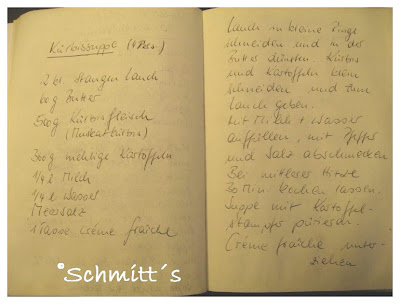 Kürbissuppe (4 Pers.)
2 Stangen Lauch
60g Butter
500g Kürbisfleisch
(Muskatkürbis)
300g mehlige Kartoffeln
1/4 l Milch
1/4 l Wasser
Meersalz
1 Tasse Crème fraîche
°Schmitt´s
Lauch in kleine Ringe
schneiden und in der
Butter dünsten. Kürbis
und Kartoffeln klein
schneiden und zum
Lauch geben.
Mit Milch + Wasser
auffüllen, mit Pfeffer
und Salz abschmecken
Bei mittlerer Hitze
30 Min. kochen lassen.
Suppe mit Kartoffel-
stampfer pürieren.
Crème fraîche unter-
ziehen